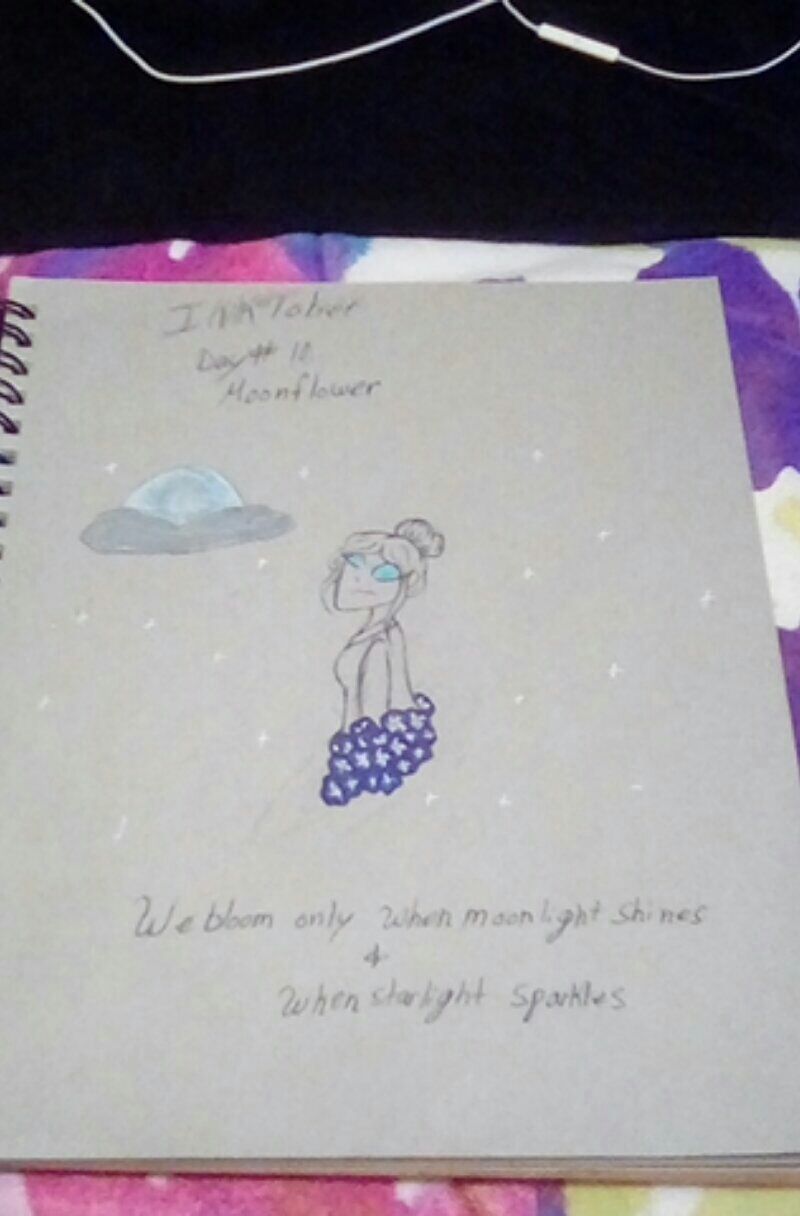 INKTober
Day# 10
Moonflower
We bloom only when moonlight shines
&
when starlight sparkles